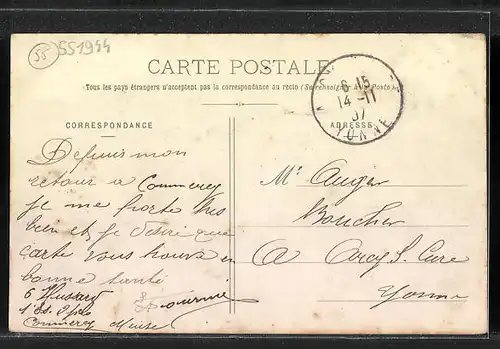 55
551944
CARTE POSTALE
Tous les pays étrangers n'acceptent pas la correspondance au recto (Se renseigner à la Poste)
6-15
14-11
07
YONNE
CORRESPONDANCE
ADRESSE
Depuis mon
retour a Commercy
je me porte tres
bien et je désire que
carte vous trouve en
bonne santé
6 Hussard
1 Es.
Commercy Meuse
Mr Auger
Boucher
a Arcy S. Cure
Yonne